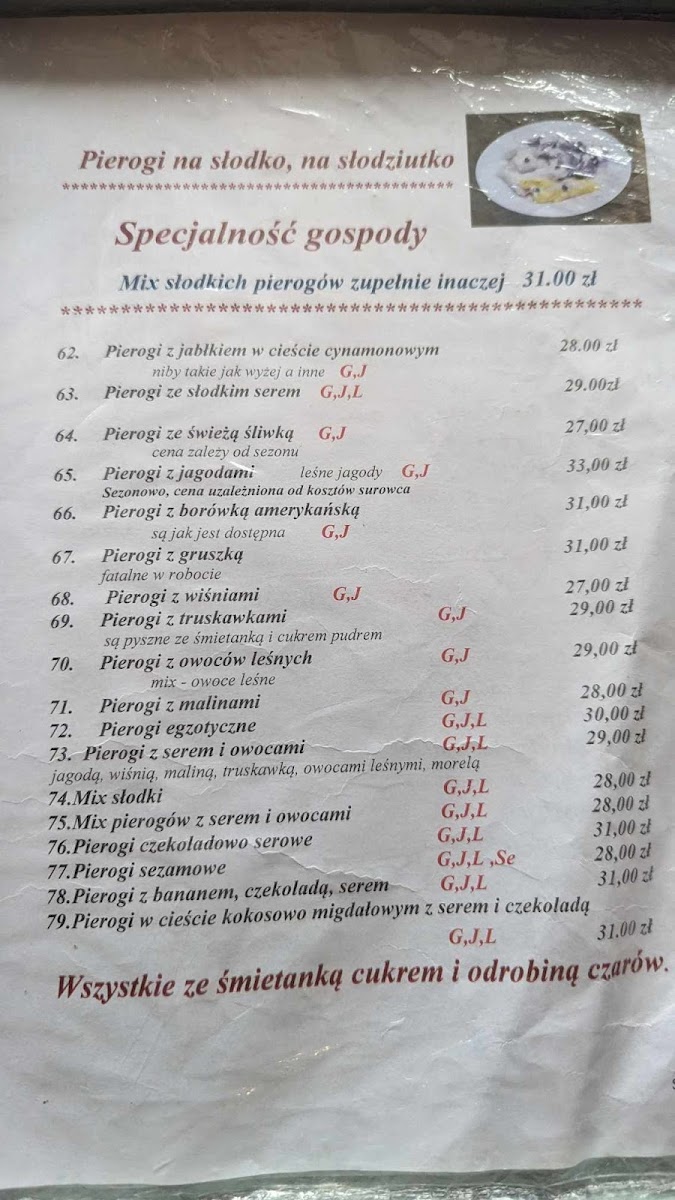 Pierogi na słodko, na słodziutko
****************************************
Specjalność gospody
Mix słodkich pierogów zupełnie inaczej 31.00 zł
************************************************
62. Pierogi z jabłkiem w cieście cynamonowym 28.00 zł
niby takie jak wyżej a inne G,J
63. Pierogi ze słodkim serem G,J,L 29.00zł
64. Pierogi ze świeżą śliwką G,J 27,00 zł
cena zależy od sezonu
65. Pierogi z jagodami leśne jagody G,J 33,00 zł
Sezonowo, cena uzależniona od kosztów surowca
66. Pierogi z borówką amerykańską 31,00 zł
są jak jest dostępna G,J
67. Pierogi z gruszką 31,00 zł
fatalne w robocie
68. Pierogi z wiśniami G,J 27,00 zł
69. Pierogi z truskawkami G,J 29,00 zł
są pyszne ze śmietanką i cukrem pudrem
70. Pierogi z owoców leśnych G,J 29,00 zł
mix - owoce leśne
71. Pierogi z malinami G,J 28,00 zł
72. Pierogi egzotyczne G,J,L 30,00 zł
73. Pierogi z serem i owocami G,J,L 29,00 zł
jagodą, wiśnią, maliną, truskawką, owocami leśnymi, morelą
74.Mix słodki G,J,L 28,00 zł
75.Mix pierogów z serem i owocami G,J,L 28,00 zł
76.Pierogi czekoladowo serowe G,J,L 31,00 zł
77.Pierogi sezamowe G,J,L ,Se 28,00 zł
78.Pierogi z bananem, czekoladą, serem G,J,L 31,00 zł
79.Pierogi w cieście kokosowo migdałowym z serem i czekoladą
G,J,L 31.00 zł
Wszystkie ze śmietanką cukrem i odrobiną czarów.